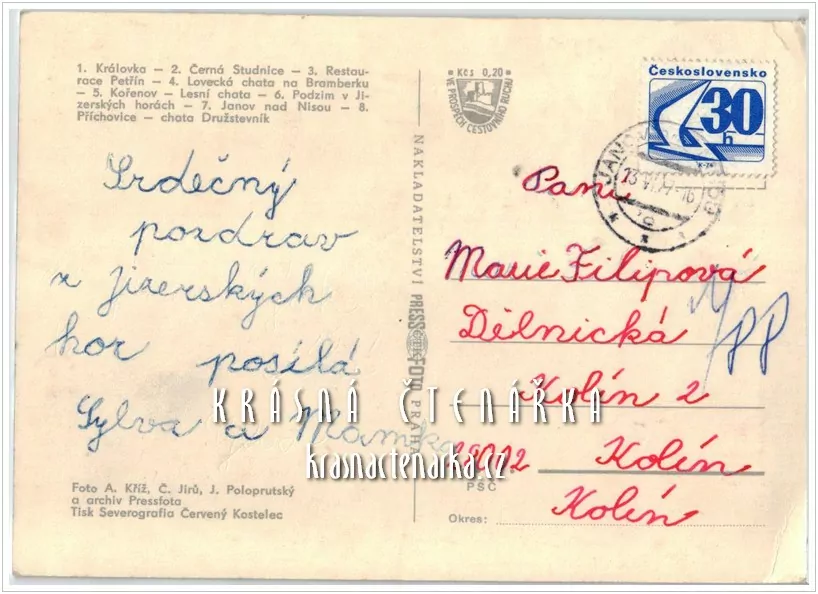 1. Královka — 2. Černá Studnice — 3. Restau-
race Petřín — 4. Lovecká chata na Bramberku
— 5. Kořenov — Lesní chata — 6. Podzim v Ji-
zerských horách — 7. Janov nad Nisou — 8.
Příchovice — chata Družstevník
Srdečný
pozdrav
z jizerských
hor posílá
Sylva a Mamka
Foto A. Kříž, Č. Jirů, J. Poloprutský
a archiv Pressfota
Tisk Severografia Červený Kostelec
Kčs 0,20
VE PROSPĚCH CESTOVNÍHO RUCHU
NAKLADATELSTVÍ PRESSFOTO PRAHA
ČTK
Československo
30
h
JANOV
Paní
Marie Filipová
Dělnická
Kolín 2
28002 Kolín
PSČ
Kolín
Okres:
KRÁSNÁ ČTENÁŘKA
krasnactenarka.cz